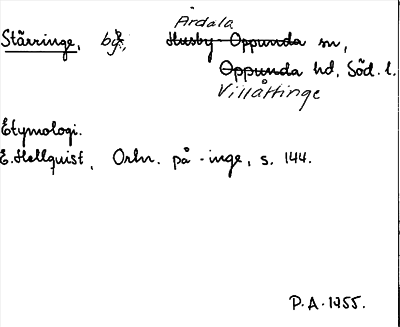 Ärdala
Stärringe, bg., Husby-Oppunda sn,
Oppunda hd, Söd. l.
Villåttinge
Etymologi.
E. Hellquist, Ortn. på -inge, s. 144.
P.A. 1955.